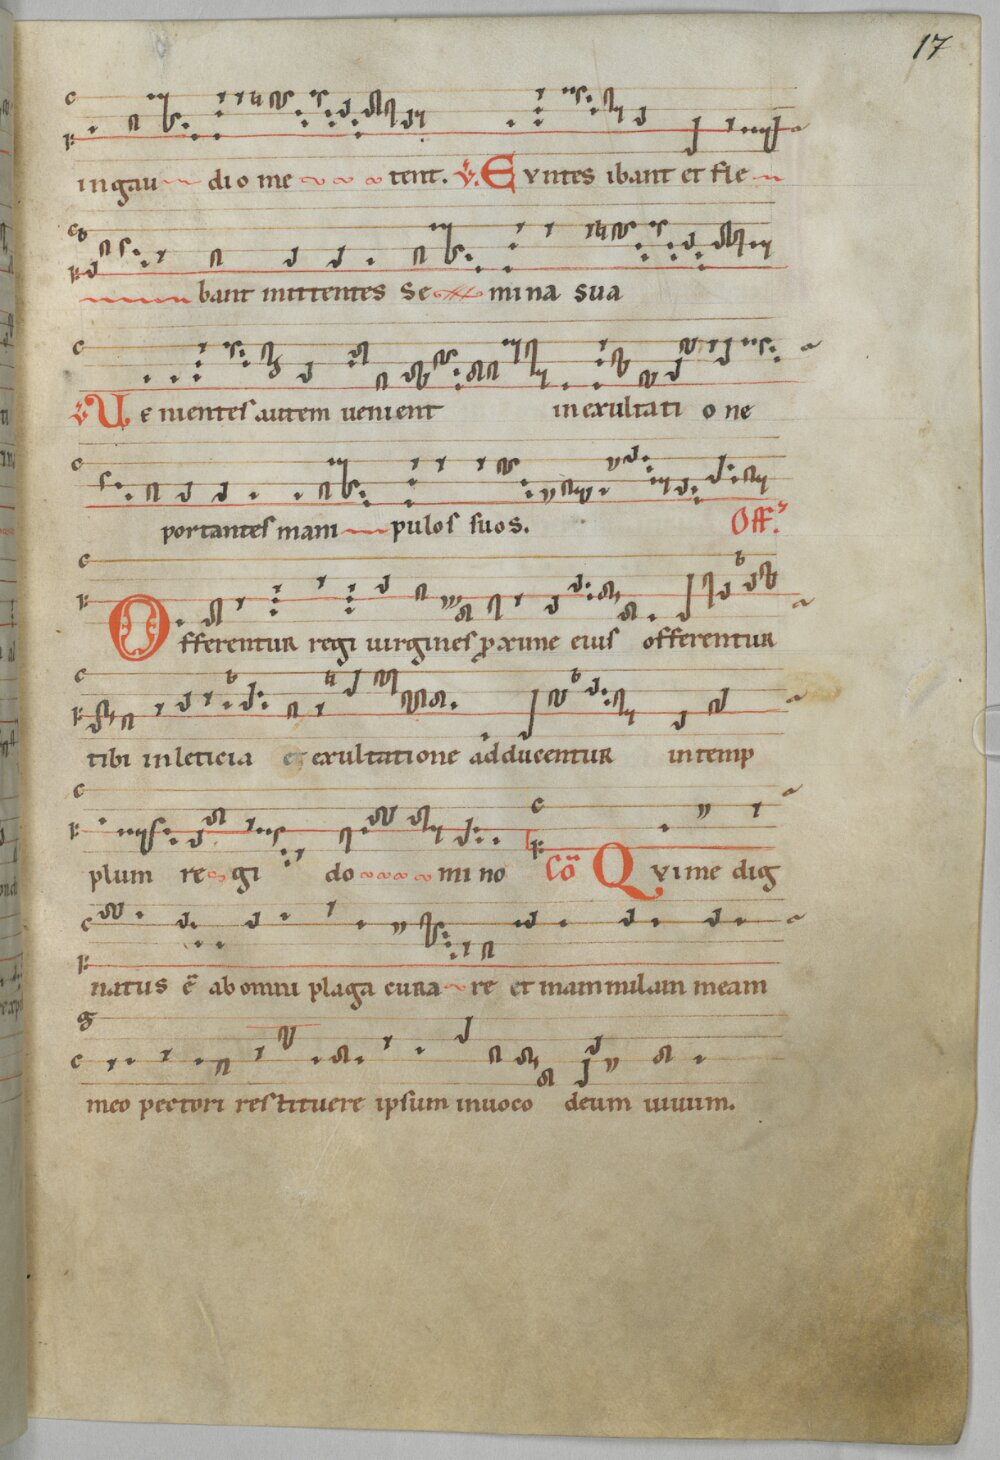 17
in gau dio me tent. ℣. Eyntes ibant et fle
bant mittentes Se mina sua
℣ Ue nientes autem uenient in exultati o ne
portantes mani pulos suos. Off.
Offerentur regi uirgines proxime eius offerentur
tibi in leticia et exultatione adducentur in temp
plum re gi do mi no Cō Qvi me dig
natus ē ab omni plaga cura re et mammilam meam
meo pectori restituere ipsum inuoco deum uiuum.